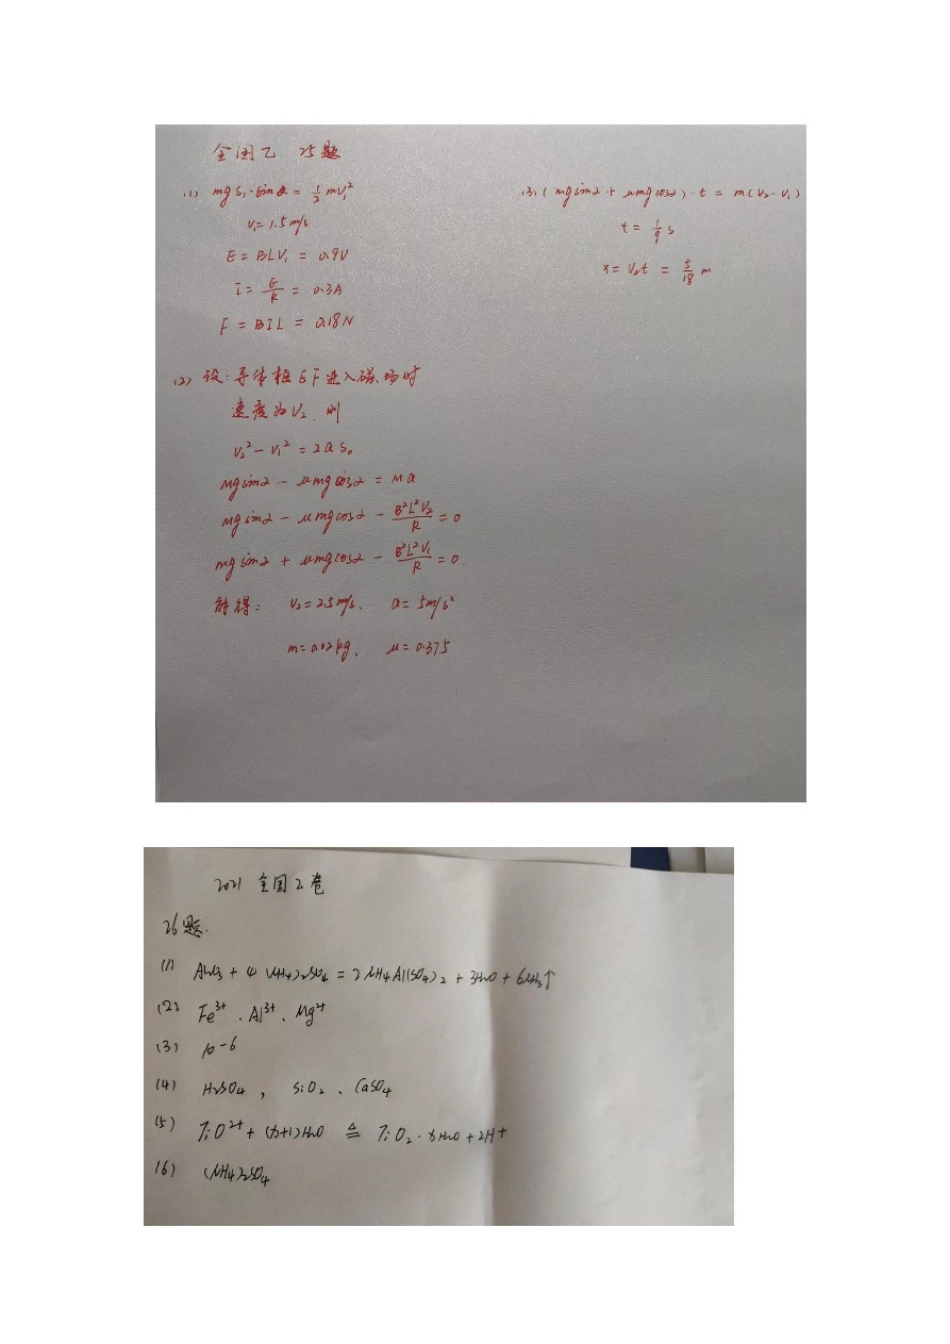 全国乙 25题
(1) mgs₁·sinα = ½mv₁²
v₁=1.5m/s
E = BLV₁ = 0.9V
I = E/R = 0.3A
F = BIL = 0.18N
(2) 设:导体框EF进入磁场时
速度为V₂,则
v₂² - v₁² = 2as₀
Mgsinα - μmgcosα = Ma
Mgsinα - μmgcosα - B²L²V₂/R = 0
mgsinα + μmgcosα - B²L²V₁/R = 0
解得: v₂=2.5m/s、 a=5m/s²
m=0.02kg、 μ=0.375
(3) (mgsinα + μmgcosα)·t = m(v₂-v₁)
t = 1/9 s
x = V₂t = 5/18 m
2021 全国乙卷
26题:
(1) Al₂O₃ + 4(NH₄)₂SO₄ = 2NH₄Al(SO₄)₂ + 3H₂O + 6NH₃↑
(2) Fe³⁺、Al³⁺、Mg²⁺
(3) 10⁻⁶
(4) H₂SO₄, SiO₂、CaSO₄
(5) TiO²⁺ + (x+1)H₂O ≜ TiO₂·xH₂O + 2H⁺
(6) (NH₄)₂SO₄